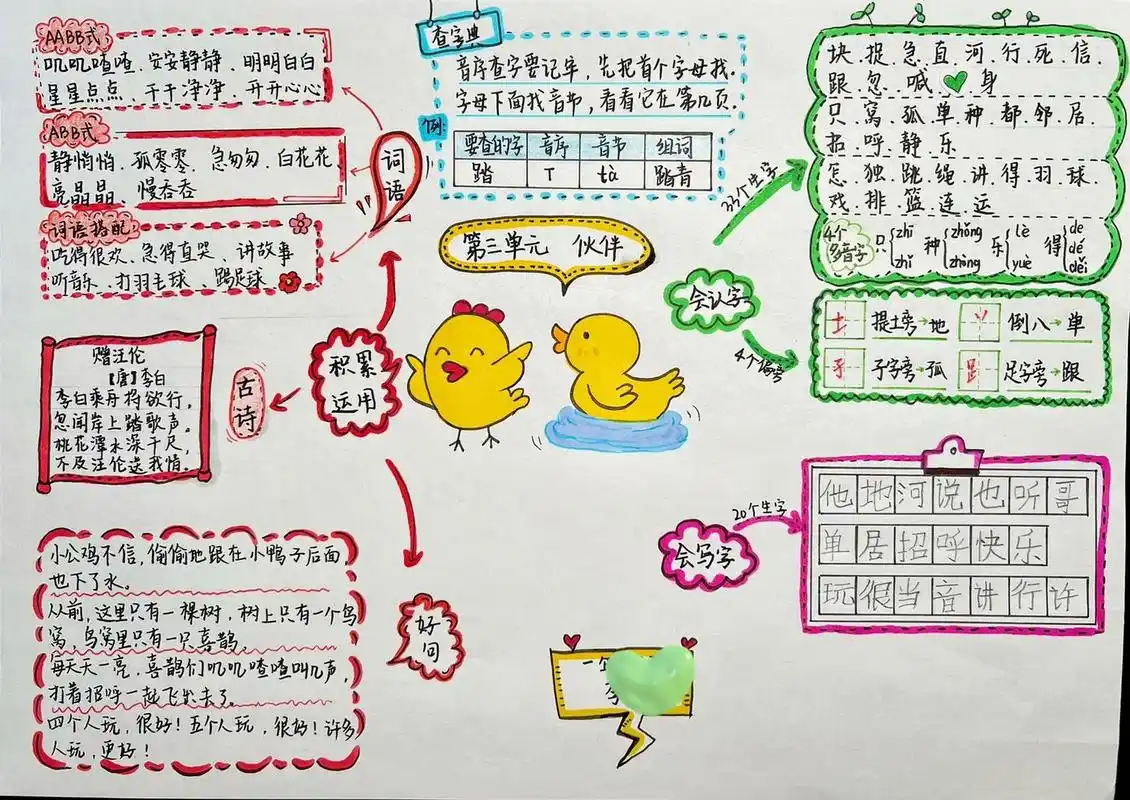 AABB式
叽叽喳喳、安安静静、明明白白
星星点点、干干净净、开开心心
ABB式
静悄悄、孤零零、急匆匆、白花花
亮晶晶、慢吞吞
词语搭配
吃得很欢、急得直哭、讲故事
听音乐、打羽毛球、踢足球
词语
查字典
音序查字要记牢，先把首个字母找。
字母下面找音节，看看它在第几页。
例:
要查的字 音序 音节 组词
踏 T tà 踏青
第三单元 伙伴
积累
运用
古诗
赠汪伦
【唐】李白
李白乘舟将欲行，
忽闻岸上踏歌声。
桃花潭水深千尺，
不及汪伦送我情。
好句
小公鸡不信，偷偷地跟在小鸭子后面，
也下了水。
从前，这里只有一棵树，树上只有一个鸟
窝，鸟窝里只有一只喜鹊。
每天天一亮，喜鹊们叽叽喳喳叫几声，
打着招呼一起飞出去了。
四个人玩，很好！五个人玩，很好！许多
人玩，更好！
会认字
33个生字
块、捉、急、直、河、行、死、信、
跟、忽、喊、身
只、窝、孤、单、种、都、邻、居、
招、呼、静、乐
怎、独、跳、绳、讲、得、羽、球、
戏、排、篮、连、运
4个
多音字
只 zhī zhǐ 种 zhǒng zhòng 乐 lè yuè 得 de dé děi
4个偏旁
提土旁→地 倒八→单
孑 子字旁→孤 足字旁→跟
会写字
20个生字
他地河说也听哥
单居招呼快乐
玩很当音讲行许